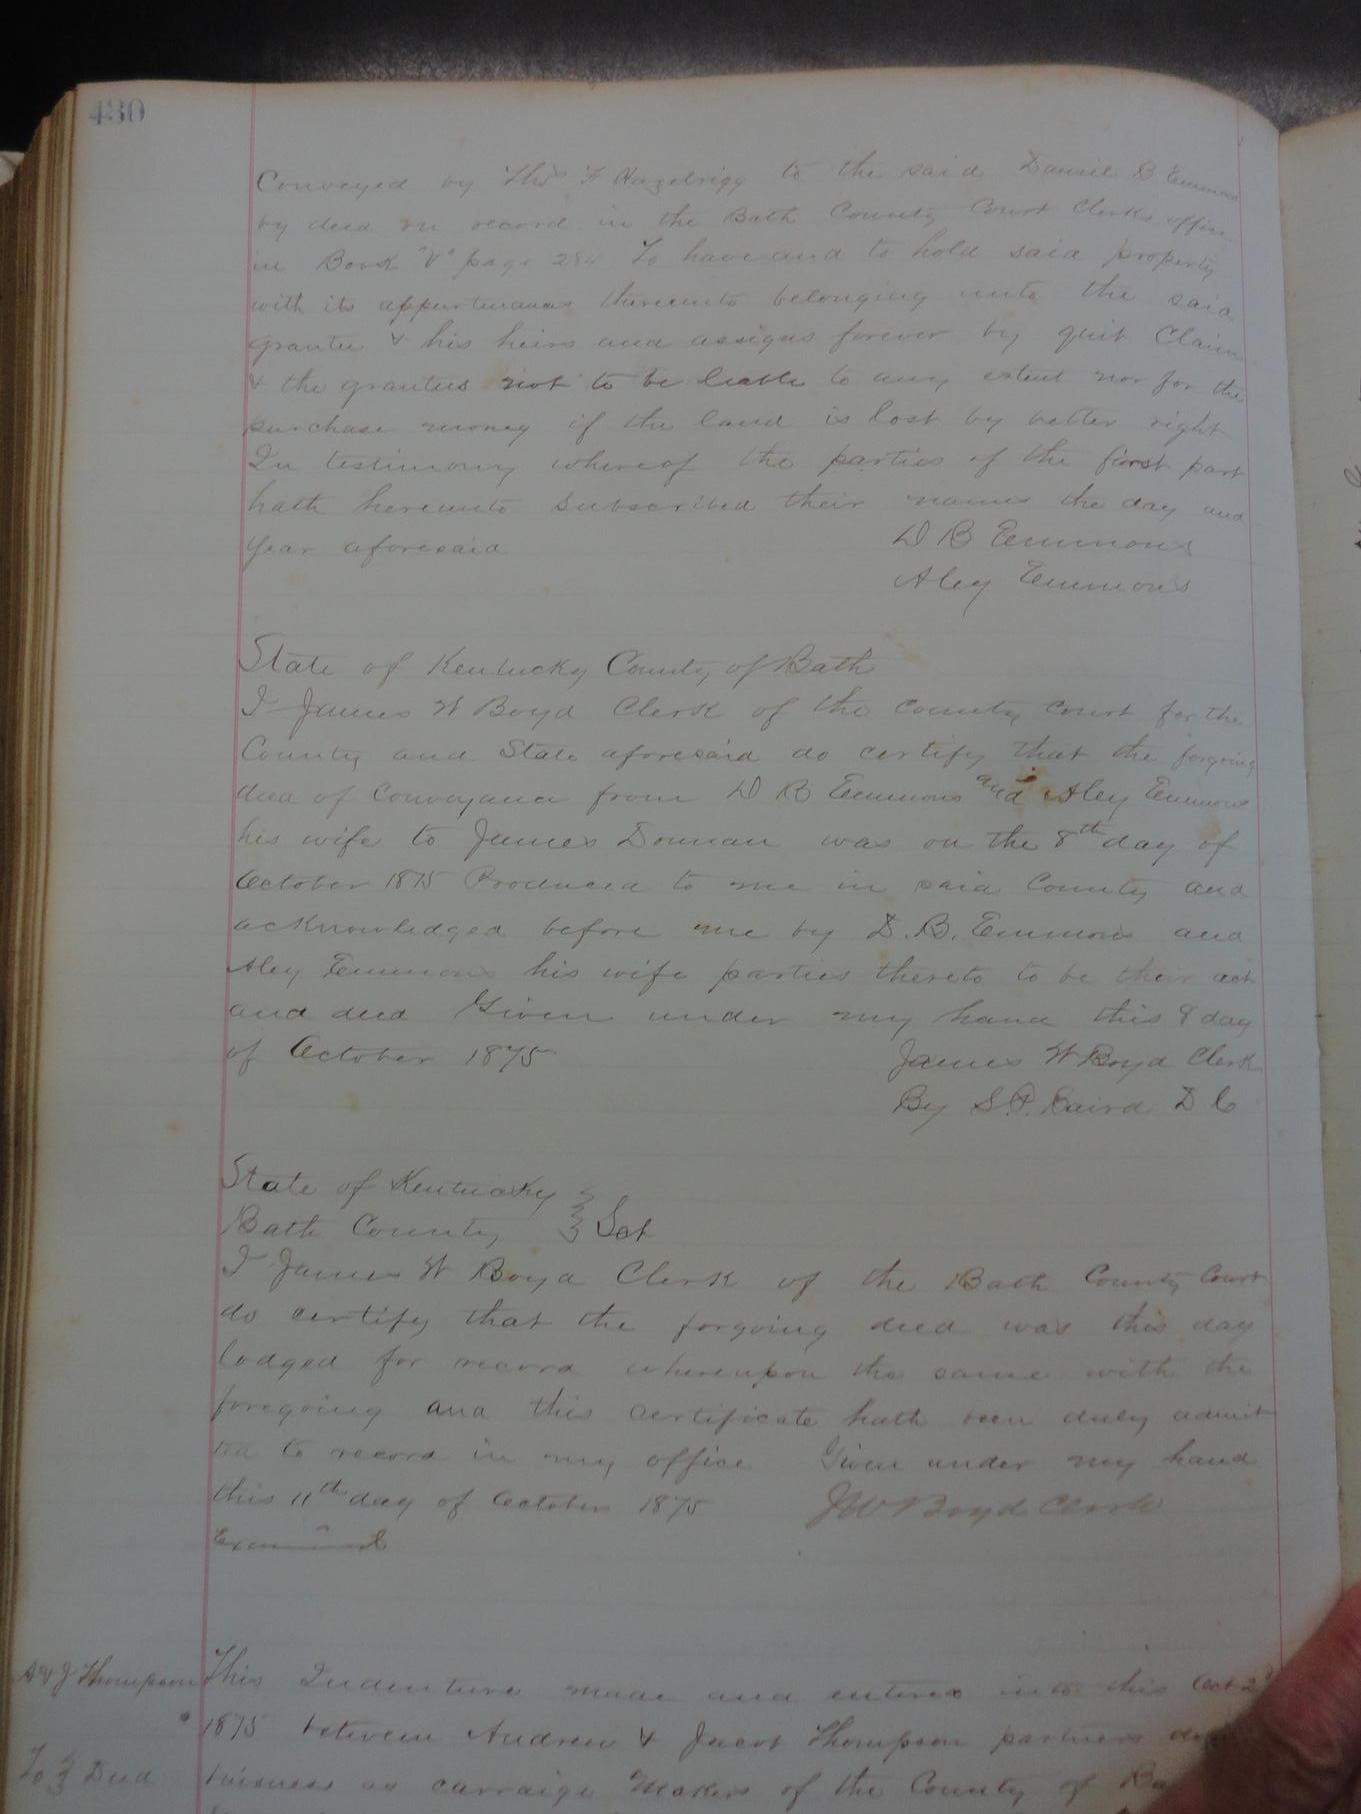 430
Conveyed by Thos F Hazelrigg to the said Daniel B Emmons
by deed on record in the Bath County Court Clerks office
in Book "V" page 284 To have and to hold said property
with its appurtenances thereunto belonging unto the said
grantee & his heirs and assigns forever by quit Claim
& the grantees not to be liable to any extent nor for the
purchase money if the land is lost by better right
In testimony whereof the parties of the first part
hath hereunto subscribed their names the day and
year aforesaid
D B Emmons
Aley Emmons
State of Kentucky County of Bath
I James W Boyd Clerk of the County Court for the
County and State aforesaid do certify that the forgoing
deed of Conveyance from D B Emmons and Aley Emmons
his wife to James Donnan was on the 8th day of
October 1875 Produced to me in said County and
acknowledged before me by D. B. Emmons and
Aley Emmons his wife parties thereto to be their act
and deed Given under my hand this 8 day
of October 1875
James W Boyd Clerk
By S. P. Baird D C
State of Kentucky
Bath County } Sct
I James W Boyd Clerk of the Bath County Court
do certify that the forgoing deed was this day
lodged for record whereupon the same with the
foregoing and this certificate hath been duly admit
ted to record in my office Given under my hand
this 11th day of October 1875
J W Boyd Clerk
Examined
A & J Thompson
This Indenture made and entered into this Oct 2d
1875 between Andrew & Jacob Thompson partners
To } Deed
buisness as carraige Makers of the County of